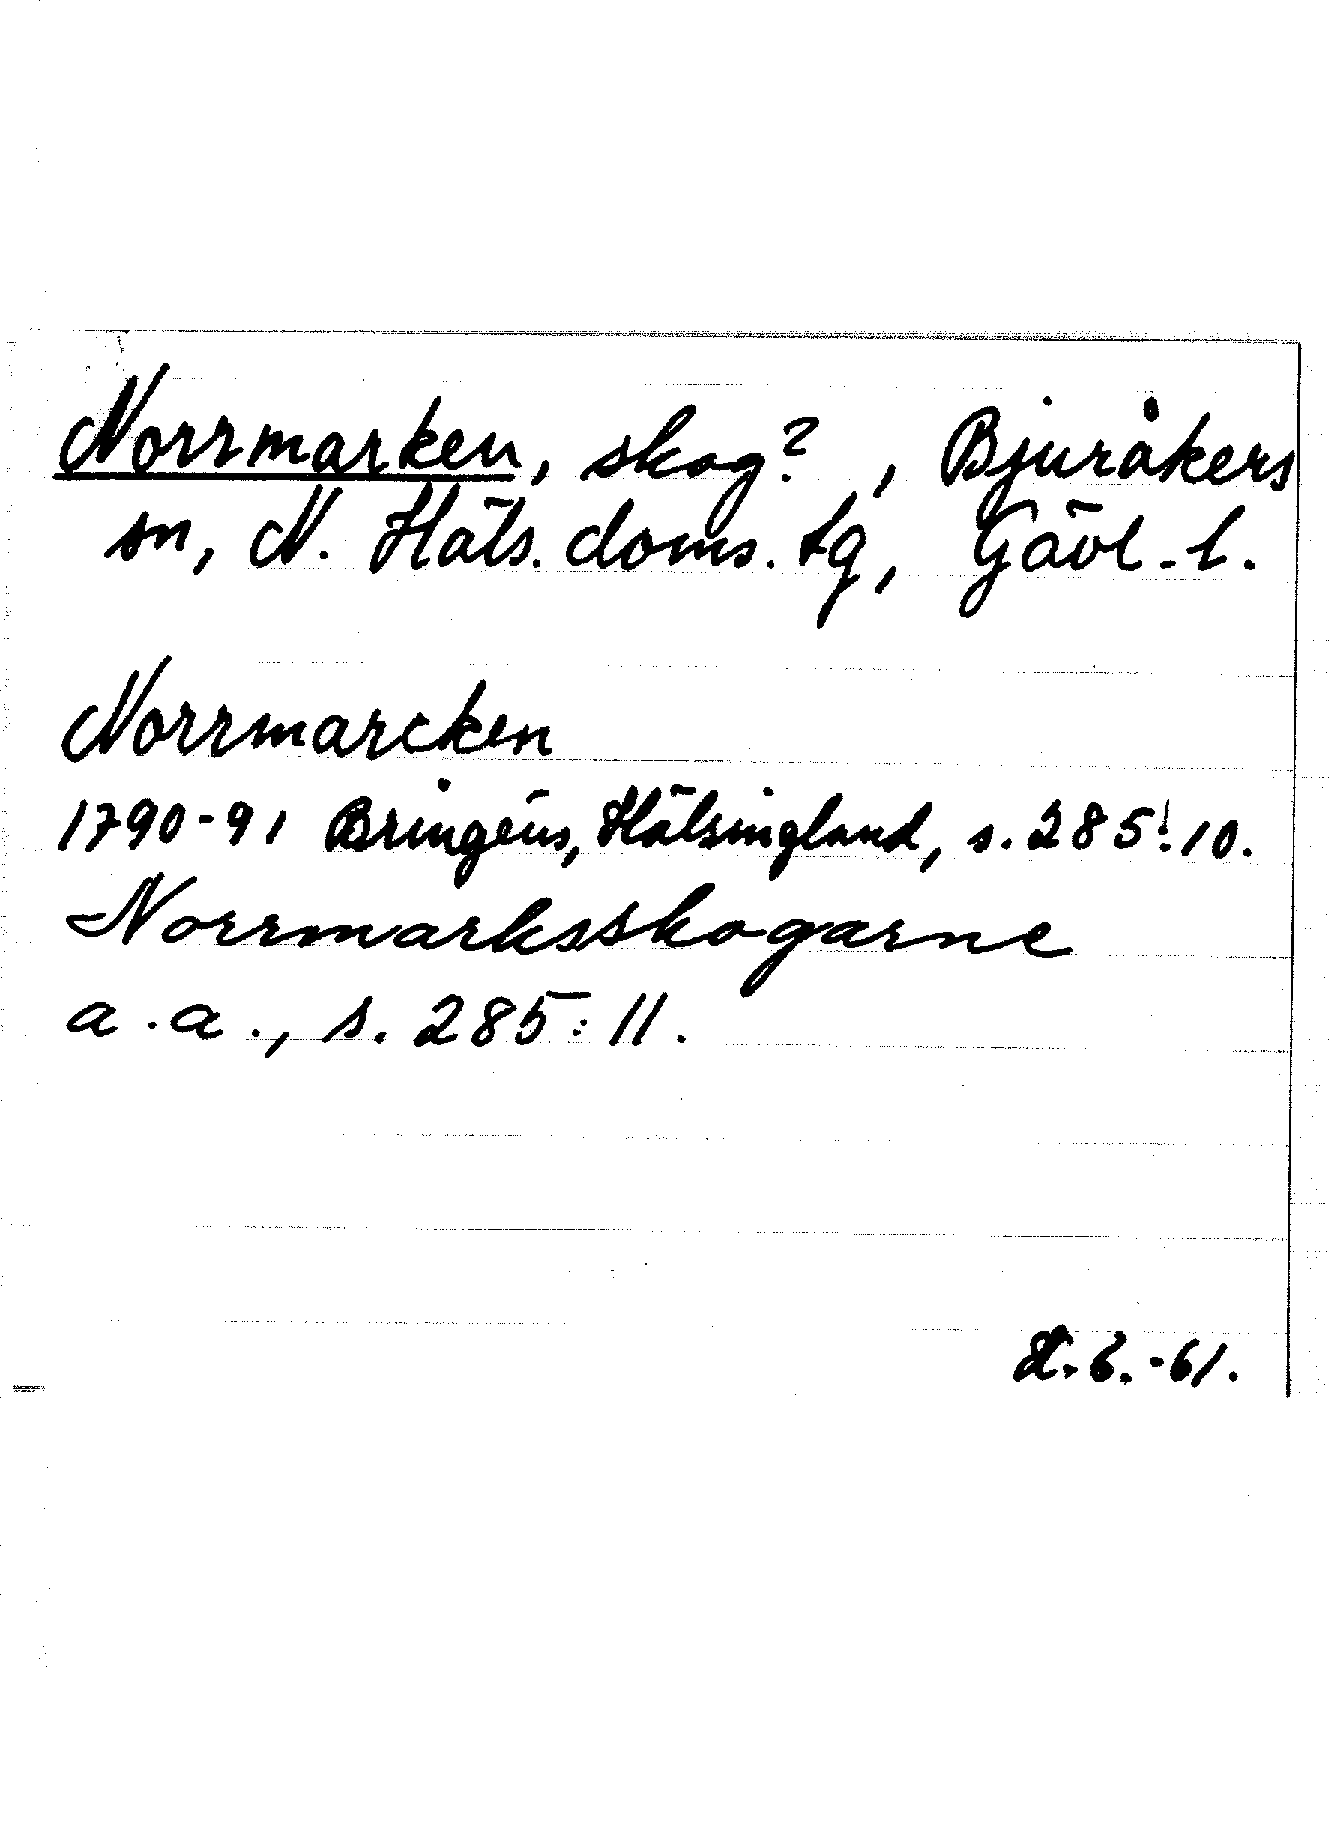 Norrmarken, skog?, Bjuråkers
sn, N. Häls. doms. tg, Gävl. l.
Norrmarcken
1790-91 Bringéus, Hälsingland, s. 285:10.
Norrmarksskogarne
a.a., s. 285:11.
-61.